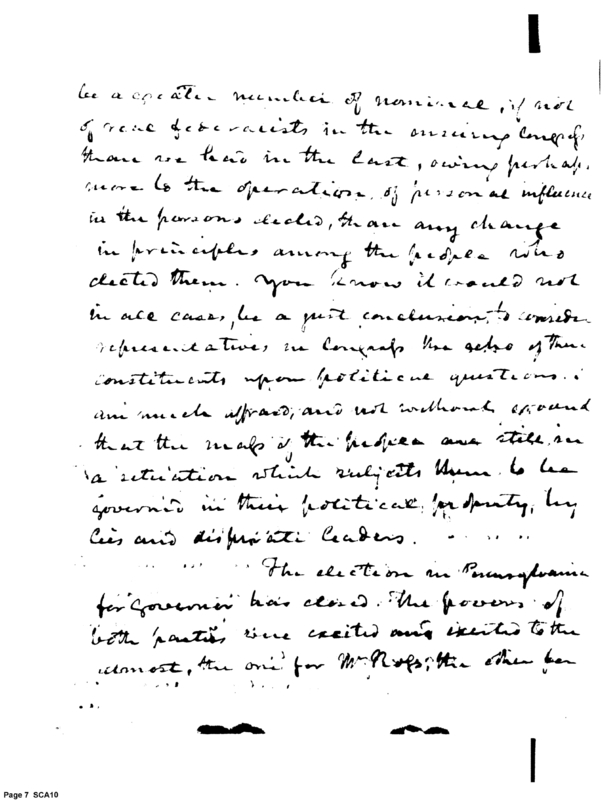 be a greater number of nominal, if not
of real federalists in the ensuing Congress
than we had in the last, owing perhaps
more to the operation of personal influence
in the persons elected, than any change
in principles among the people who
elected them. You know it would not
in all cases, be a just conclusion, to consider
representatives in Congress the echo of their
constituents upon political questions. I
am much afraid, and not without ground
that the mass of the people are still in
a situation which subjects them to be
governed in their political, by
lies and leaders.
The election in Pennsylvania
for Governor has closed. The powers of
both parties were excited and exerted to the
utmost, the one for Mr. Ross, the other for
Page 7 SCA10